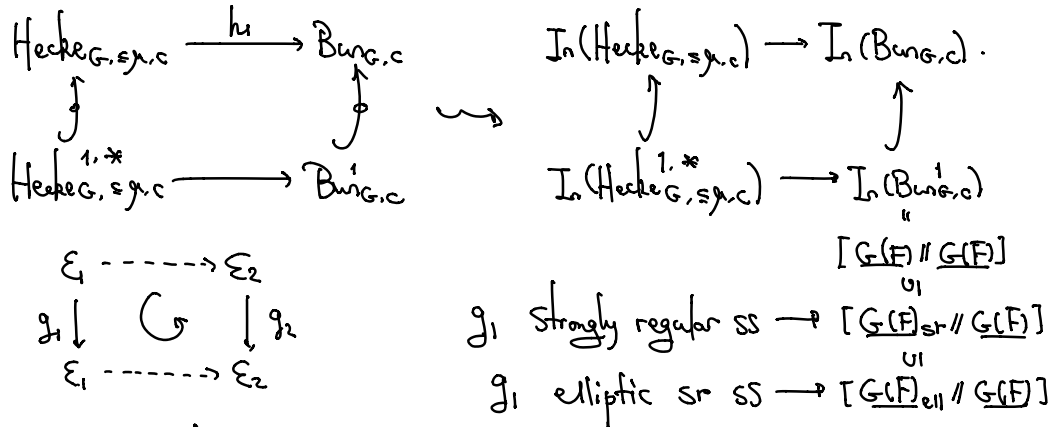 Hecke_{G,≤μ,C} —h₁→ Bun_{G,C} ⇝ In(Hecke_{G,≤μ,C}) → In(Bun_{G,C}).
Hecke^{1,*}_{G,≤μ,C} → Bun^{1}_{G,C} In(Hecke^{1,*}_{G,≤μ,C}) → In(Bun^{1}_{G,C})
[G(F) // G(F)]
ε₁ ⇢ ε₂
g₁ g₂ g₁ strongly regular ss → [G(F)_{sr} // G(F)]
ε₁ ⇢ ε₂
g₁ elliptic sr ss → [G(F)_{ell} // G(F)]